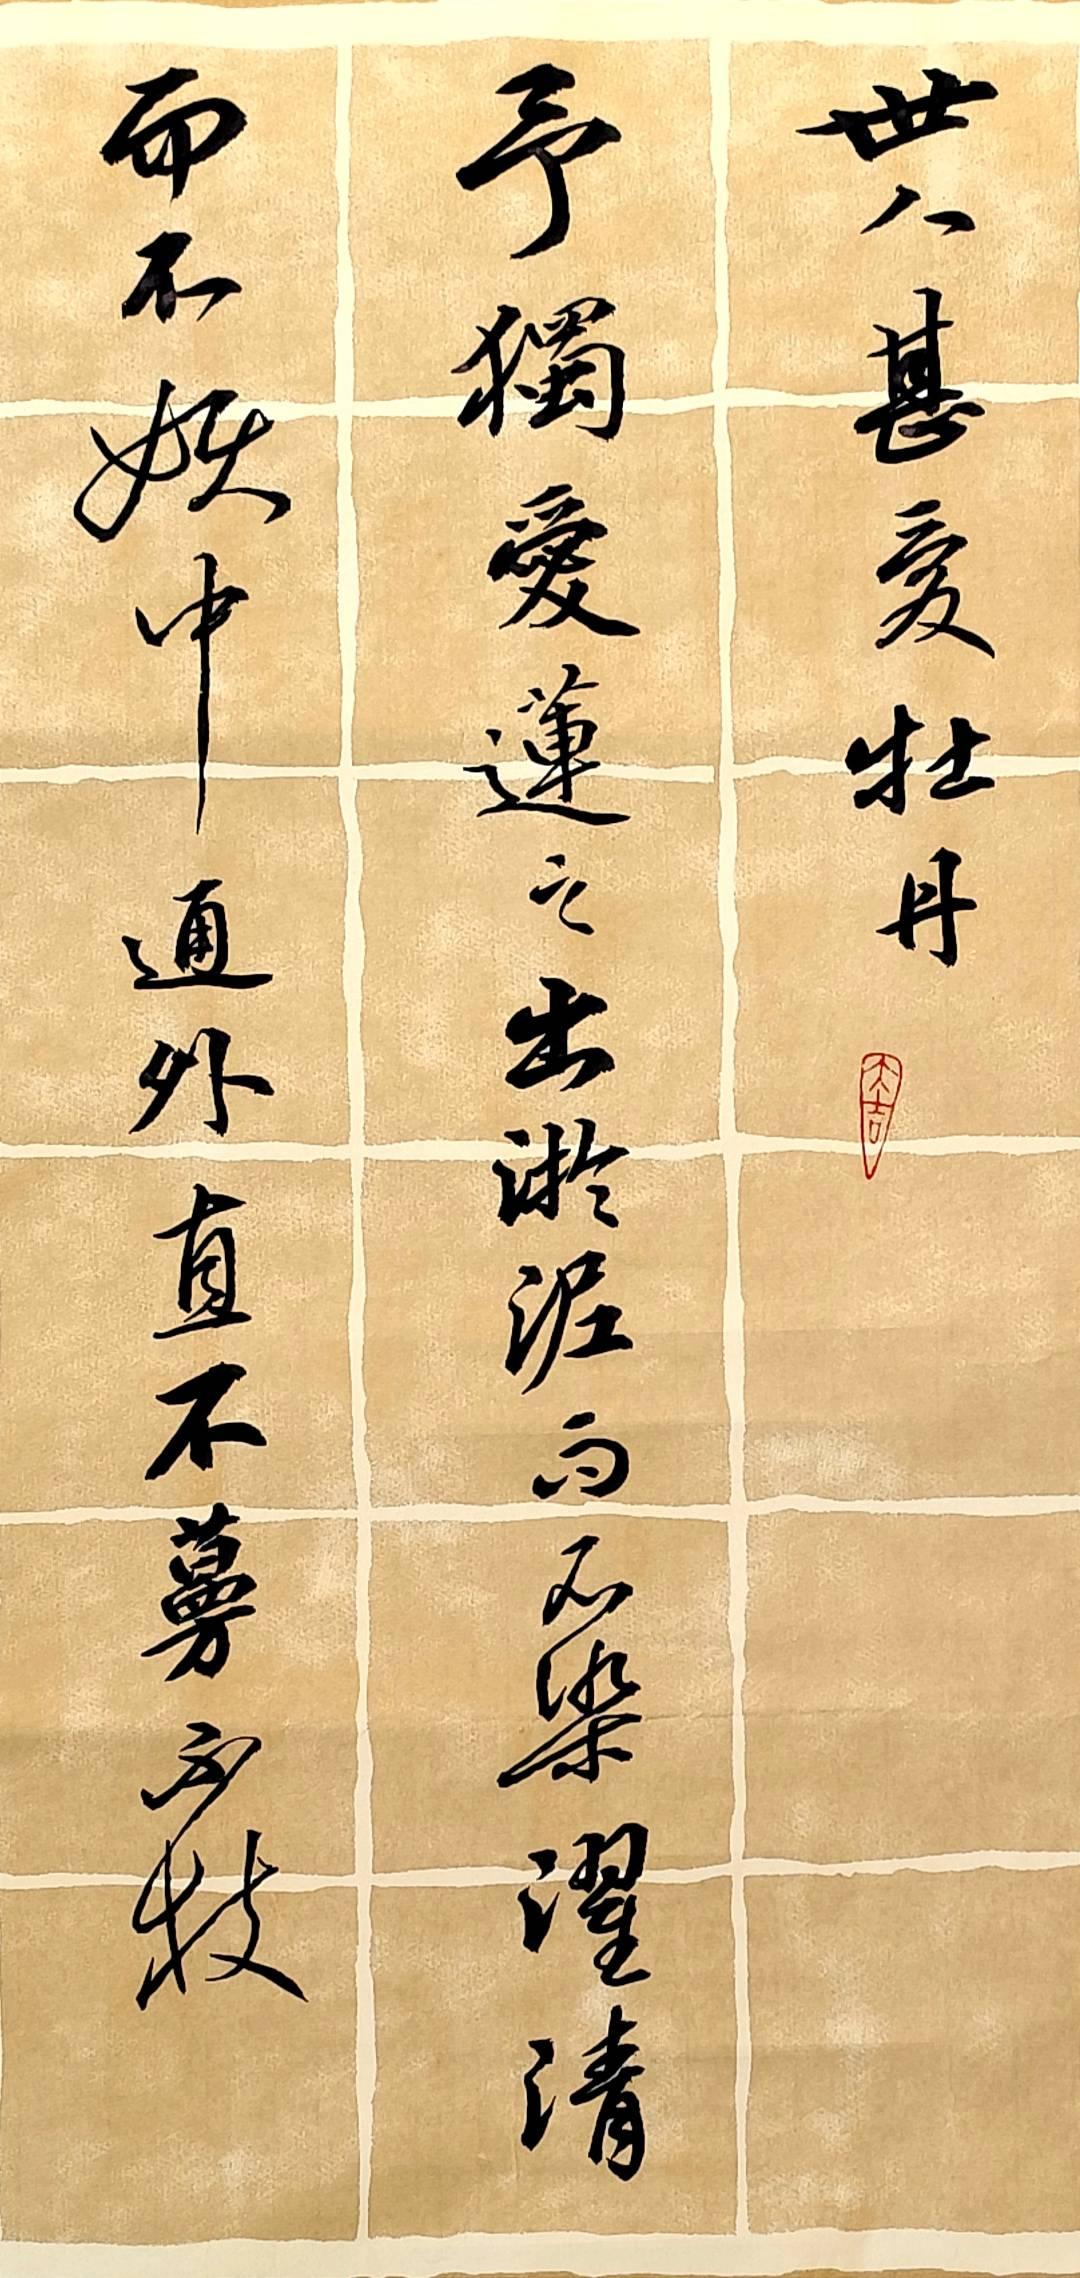 世人甚爱牡丹
大吉
予獨愛蓮之出淤泥而不染濯清
而不妖中通外直不蔓不枝